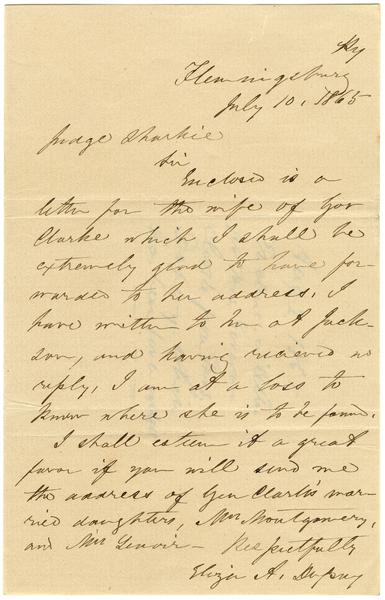 Ky
Flemingsburg
July 10, 1865
Judge Sharkie
Sir
Enclosed is a
letter for the wife of Gov
Clarke which I shall be
extremely glad to have for-
warded to her address. I
have written to her at Jack-
son, and having recieved no
reply, I am at a loss to
know where she is to be found.
I shall esteem it a great
favor if you will send me
the address of Gen Clark's mar-
ried daughters, Mrs Montgomery,
and Mrs Lenoir - Respectfully
Eliza A. Dupuy